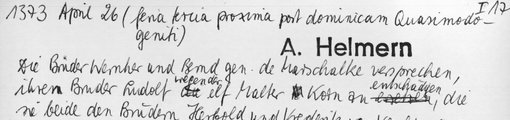 1373 April 26 (feria tercia proxima post dominicam Quasimodo- I 17
geniti)
A. Helmern
Die Brüder Wernher und Bernd gen. de Marschalke versprechen,
ihrem Bruder Rudolf wegender elf Malter Korn zu entschädigen, die
sie beide den Brüdern Herbold und